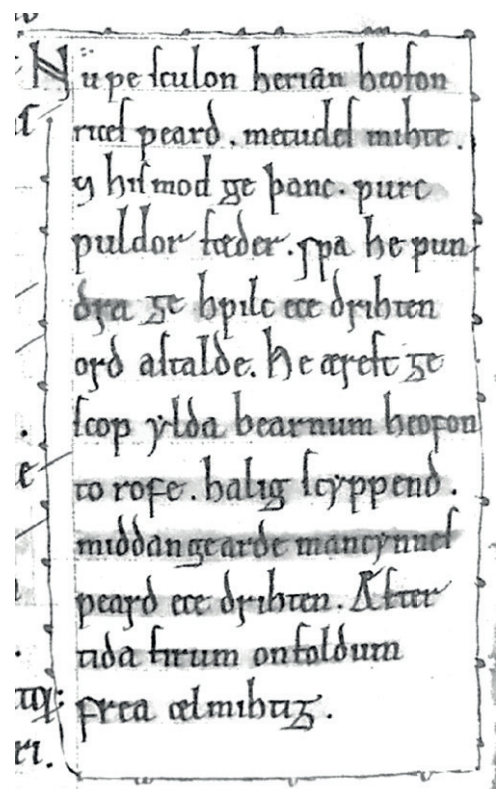 Nu ƿe sculon herian heofon
rices ƿeard . metudes mihte .
⁊ his mod ge þanc . ƿurc
ƿuldor fæder . sƿa he ƿun
dra ge hƿilc ece drihten
ord astalde . He ærest ge
scop ylda bearnum heofon
to rofe . halig scyppend .
middangearde mancynnes
ƿeard ece drihten . Æfter
tida firum onfoldum
frea ælmihtig .